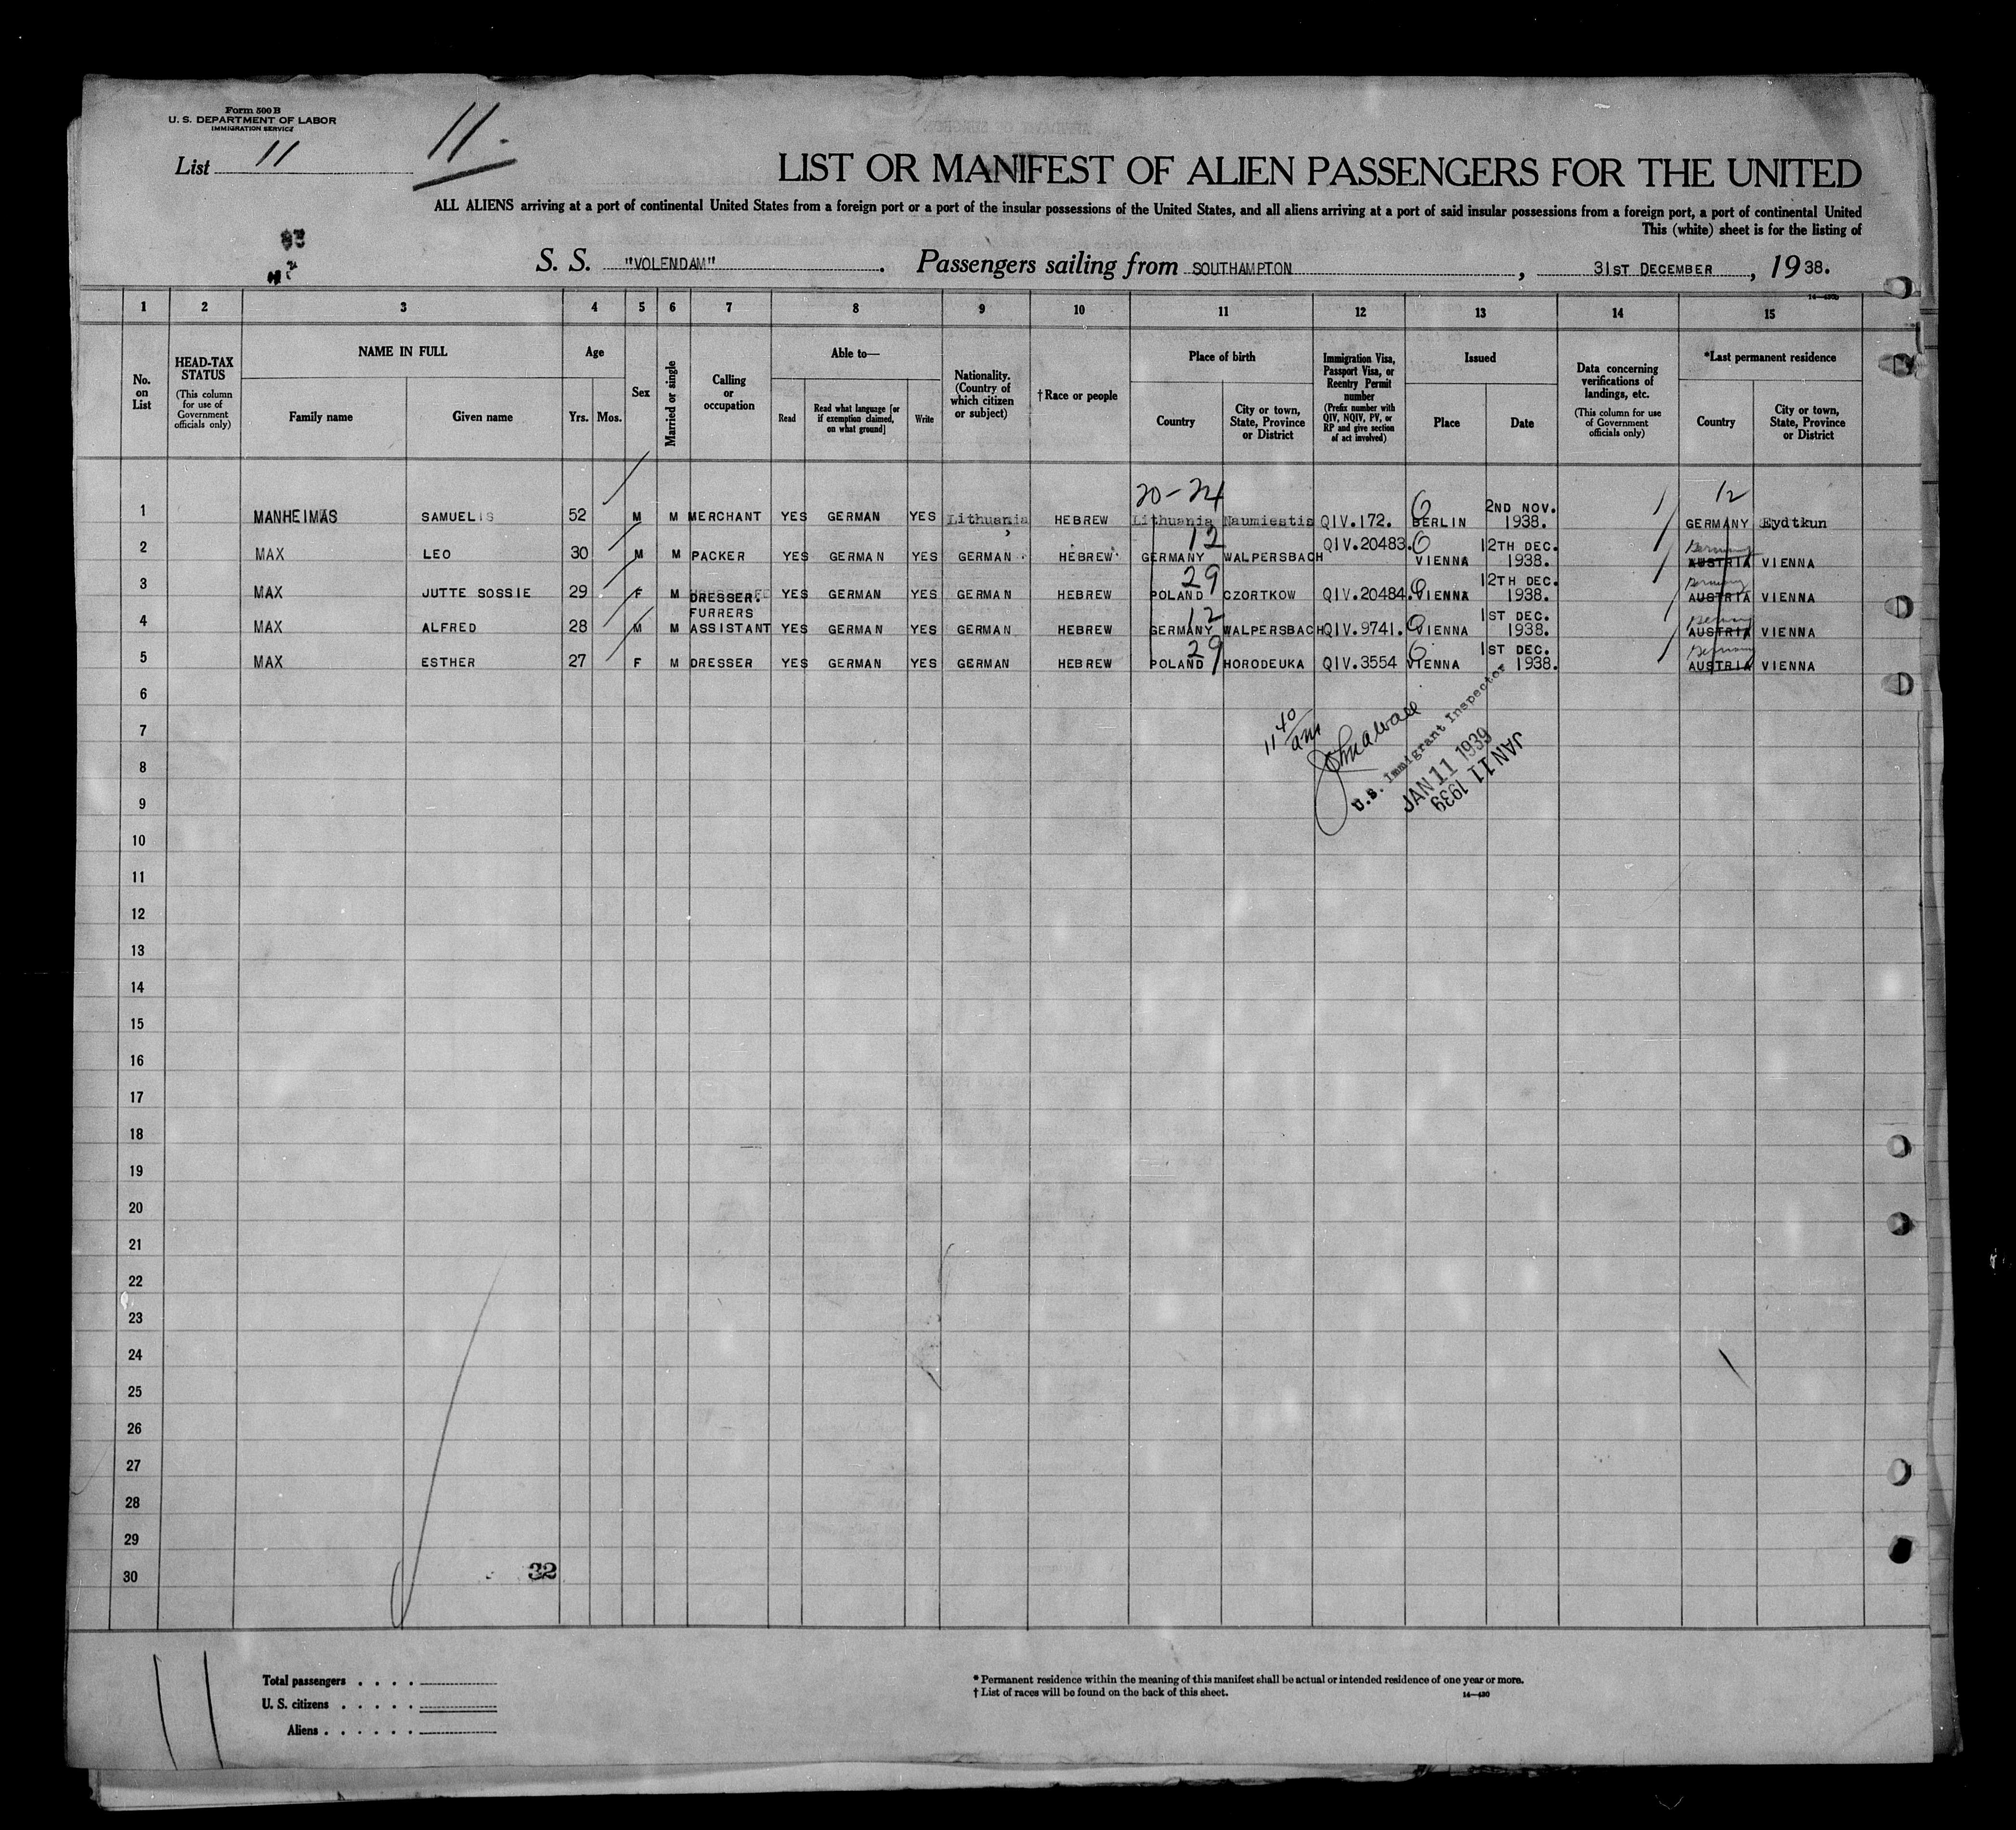 Form 500 B
U. S. DEPARTMENT OF LABOR
IMMIGRATION SERVICE
List 11
11.
LIST OR MANIFEST OF ALIEN PASSENGERS FOR THE UNITED
ALL ALIENS arriving at a port of continental United States from a foreign port or a port of the insular possessions of the United States, and all aliens arriving at a port of said insular possessions from a foreign port, a port of continental United
This (white) sheet is for the listing of
S. S. "VOLENDAM". Passengers sailing from SOUTHAMPTON, 31ST DECEMBER, 1938.
1 2 3 4 5 6 7 8 9 10 11 12 13 14 15
No. on List
HEAD-TAX STATUS (This column for use of Government officials only)
NAME IN FULL
Family name
Given name
Age
Yrs. Mos.
Sex
Married or single
Calling or occupation
Able to—
Read
Read what language [or if exemption claimed, on what ground]
Write
Nationality. (Country of which citizen or subject)
†Race or people
Place of birth
Country
City or town, State, Province or District
Immigration Visa, Passport Visa, or Reentry Permit number (Prefix number with QIV, NQIV, PV, or RP and give section of act involved)
Issued
Place
Date
Data concerning verifications of landings, etc. (This column for use of Government officials only)
*Last permanent residence
Country
City or town, State, Province or District
20-24
12
1 MANHEIMAS SAMUELIS 52 M M MERCHANT YES GERMAN YES Lithuania HEBREW Lithuania Naumiestis QIV.172. BERLIN 2ND NOV. 1938. GERMANY Eydtkun
12
2 MAX LEO 30 M M PACKER YES GERMAN YES GERMAN HEBREW GERMANY WALPERSBACH QIV.20483. VIENNA 12TH DEC. 1938. Germany AUSTRIA VIENNA
29
3 MAX JUTTE SOSSIE 29 F M DRESSER. YES GERMAN YES GERMAN HEBREW POLAND CZORTKOW QIV.20484. VIENNA 12TH DEC. 1938. Germany AUSTRIA VIENNA
12
4 MAX ALFRED 28 M M FURRERS ASSISTANT YES GERMAN YES GERMAN HEBREW GERMANY WALPERSBACH QIV.9741. VIENNA 1ST DEC. 1938. Germany AUSTRIA VIENNA
29
5 MAX ESTHER 27 F M DRESSER YES GERMAN YES GERMAN HEBREW POLAND HORODEUKA QIV.3554 VIENNA 1ST DEC. 1938. Germany AUSTRIA VIENNA
6
7
8
9
10
11
12
13
14
15
16
17
18
19
20
21
22
23
24
25
26
27
28
29
30
11 40 am
U.S. Immigrant Inspector
JAN 11 1939
JAN 11 1939
32
Total passengers
U. S. citizens
Aliens
* Permanent residence within the meaning of this manifest shall be actual or intended residence of one year or more.
† List of races will be found on the back of this sheet.
14—430